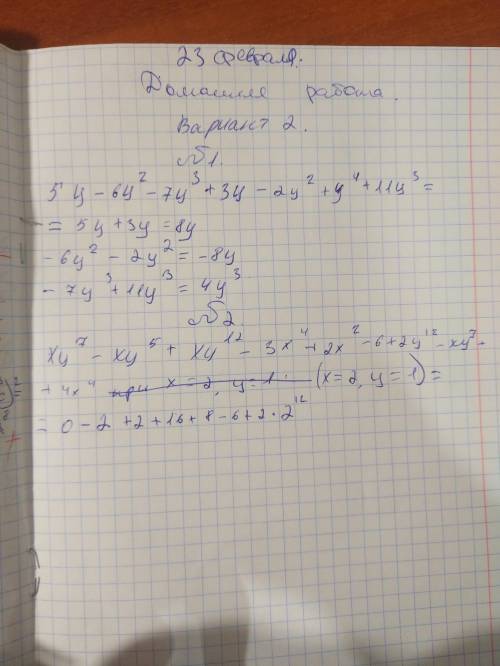 23 февраля.
Домашняя работа.
Вариант 2.
№1.
5y - 6y² - 7y³ + 3y - 2y² + y⁴ + 11y³ =
= 5y + 3y = 8y
- 6y² - 2y² = -8y
- 7y³ + 11y³ = 4y³
№2.
xy⁷ - xy⁵ + xy¹² - 3x⁴ + 2x² - 6 + 2y¹² - xy⁷ +
+ 4x⁴ при x = 2, y = 1. (x = 2, y = 1) =
= 0 - 2 + 2 + 16 + 8 - 6 + 2 · 2¹²